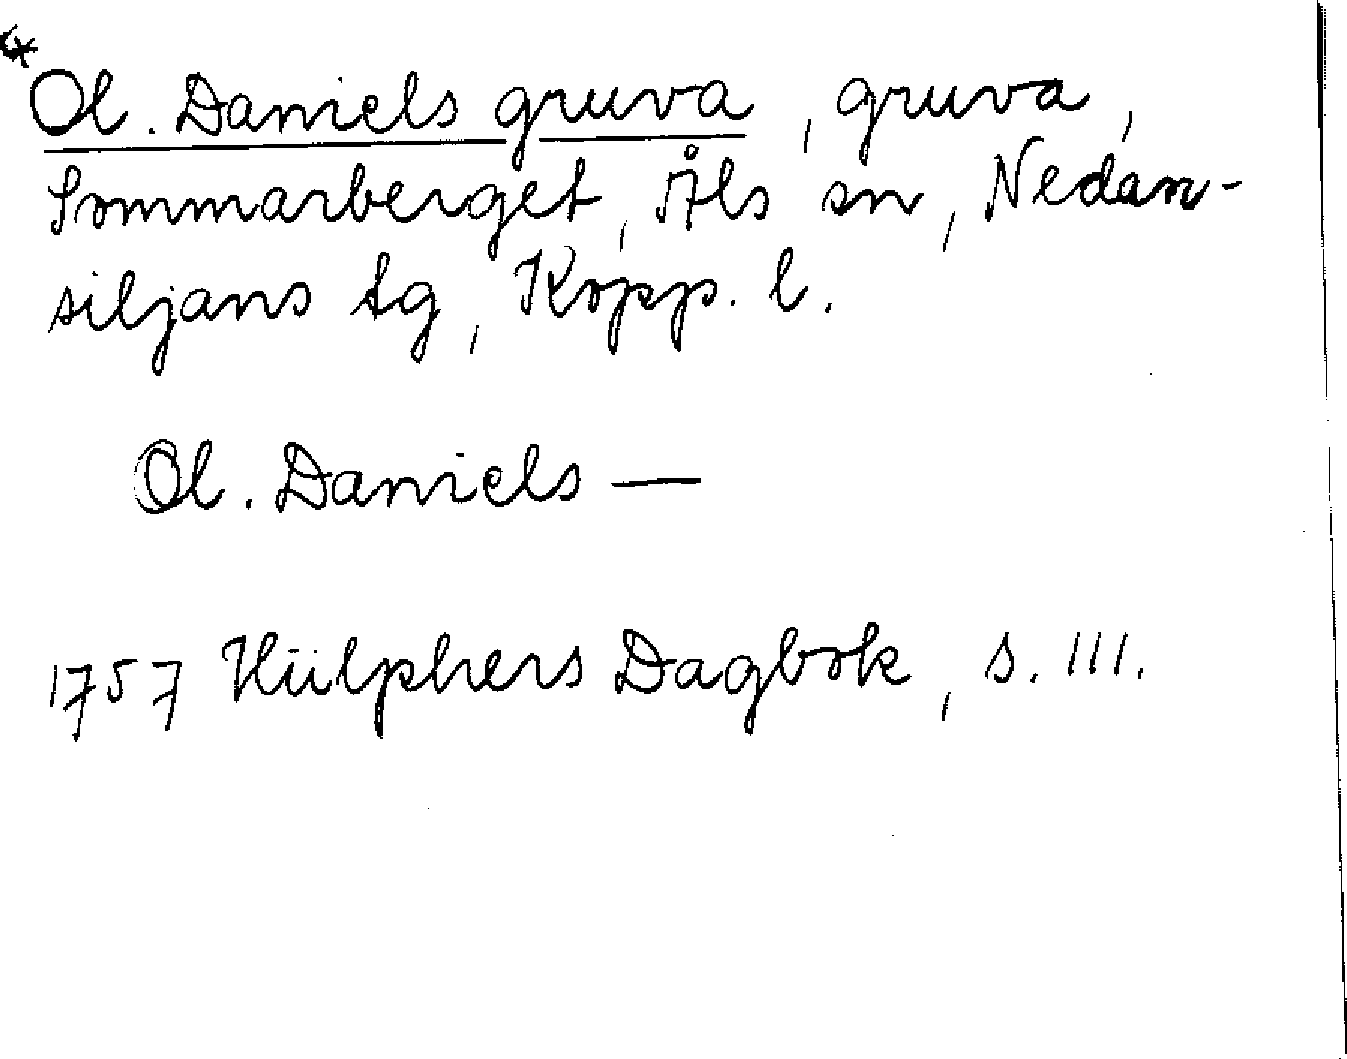 Ol. Daniels gruva, gruva,
Sommarberget, Åls sn, Nedan-
siljans tg, Kopp. l.
Ol. Daniels —
1757 Hülphers Dagbok, s. 111.